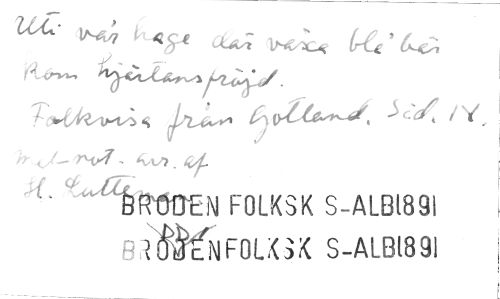 Uti vår hage där växa blå bär
Kom hjärtansfröjd.
Folkvisa från Gotland. Sid. 14.
mel-not. arr. af
H. Lutteman
BRODEN FOLKSK S-ALB1891
BRODENFOLKSK S-ALB1891